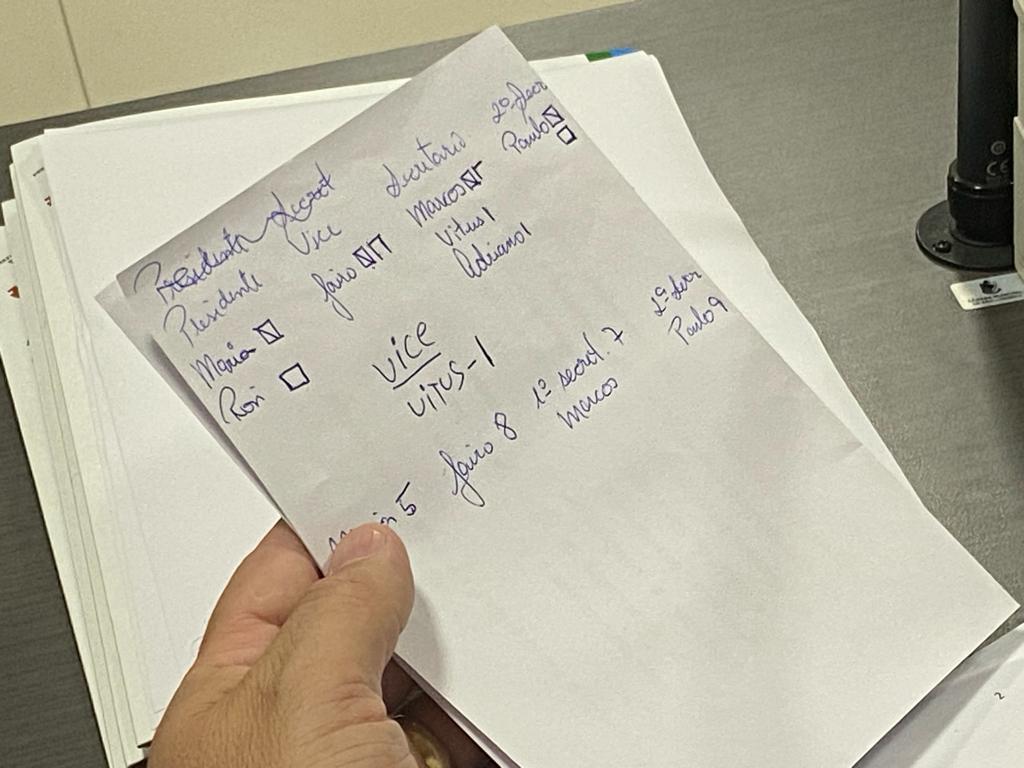 Presidente Secret
Presidente Vice Secretario 2º Secr
Maria Jairo Marcos Paulo
Roni Vitus 1
Adriano 1
Vice
Vitus-1
5 Jairo 8 1º secret. 7 2º Secr
Marcos Paulo 9
CE
2